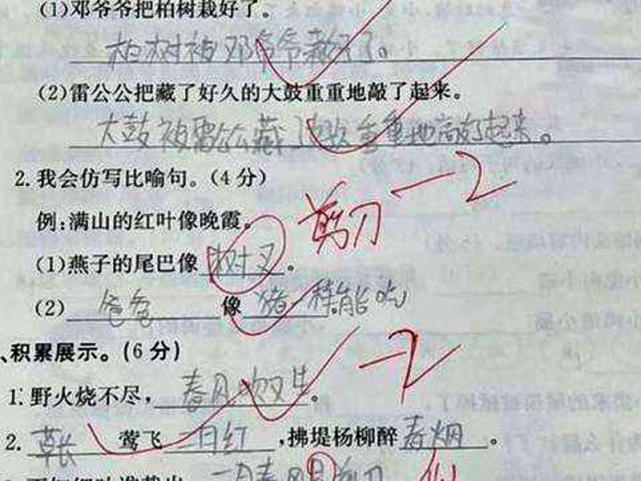 (1)邓爷爷把柏树栽好了。
柏树被邓爷爷栽好了。
(2)雷公公把藏了好久的大鼓重重地敲了起来。
大鼓被雷公公藏 重重地敲 起来。
2.我会仿写比喻句。(4分)
例:满山的红叶像晚霞。 剪刀 -2
(1)燕子的尾巴像树叉。
(2) 爸爸 像 猪一样能吃
、积累展示。(6分) -2
1.野火烧不尽,春风吹又生。
2.草长莺飞 日红 ,拂堤杨柳醉春烟。
二月春风 剪刀 似